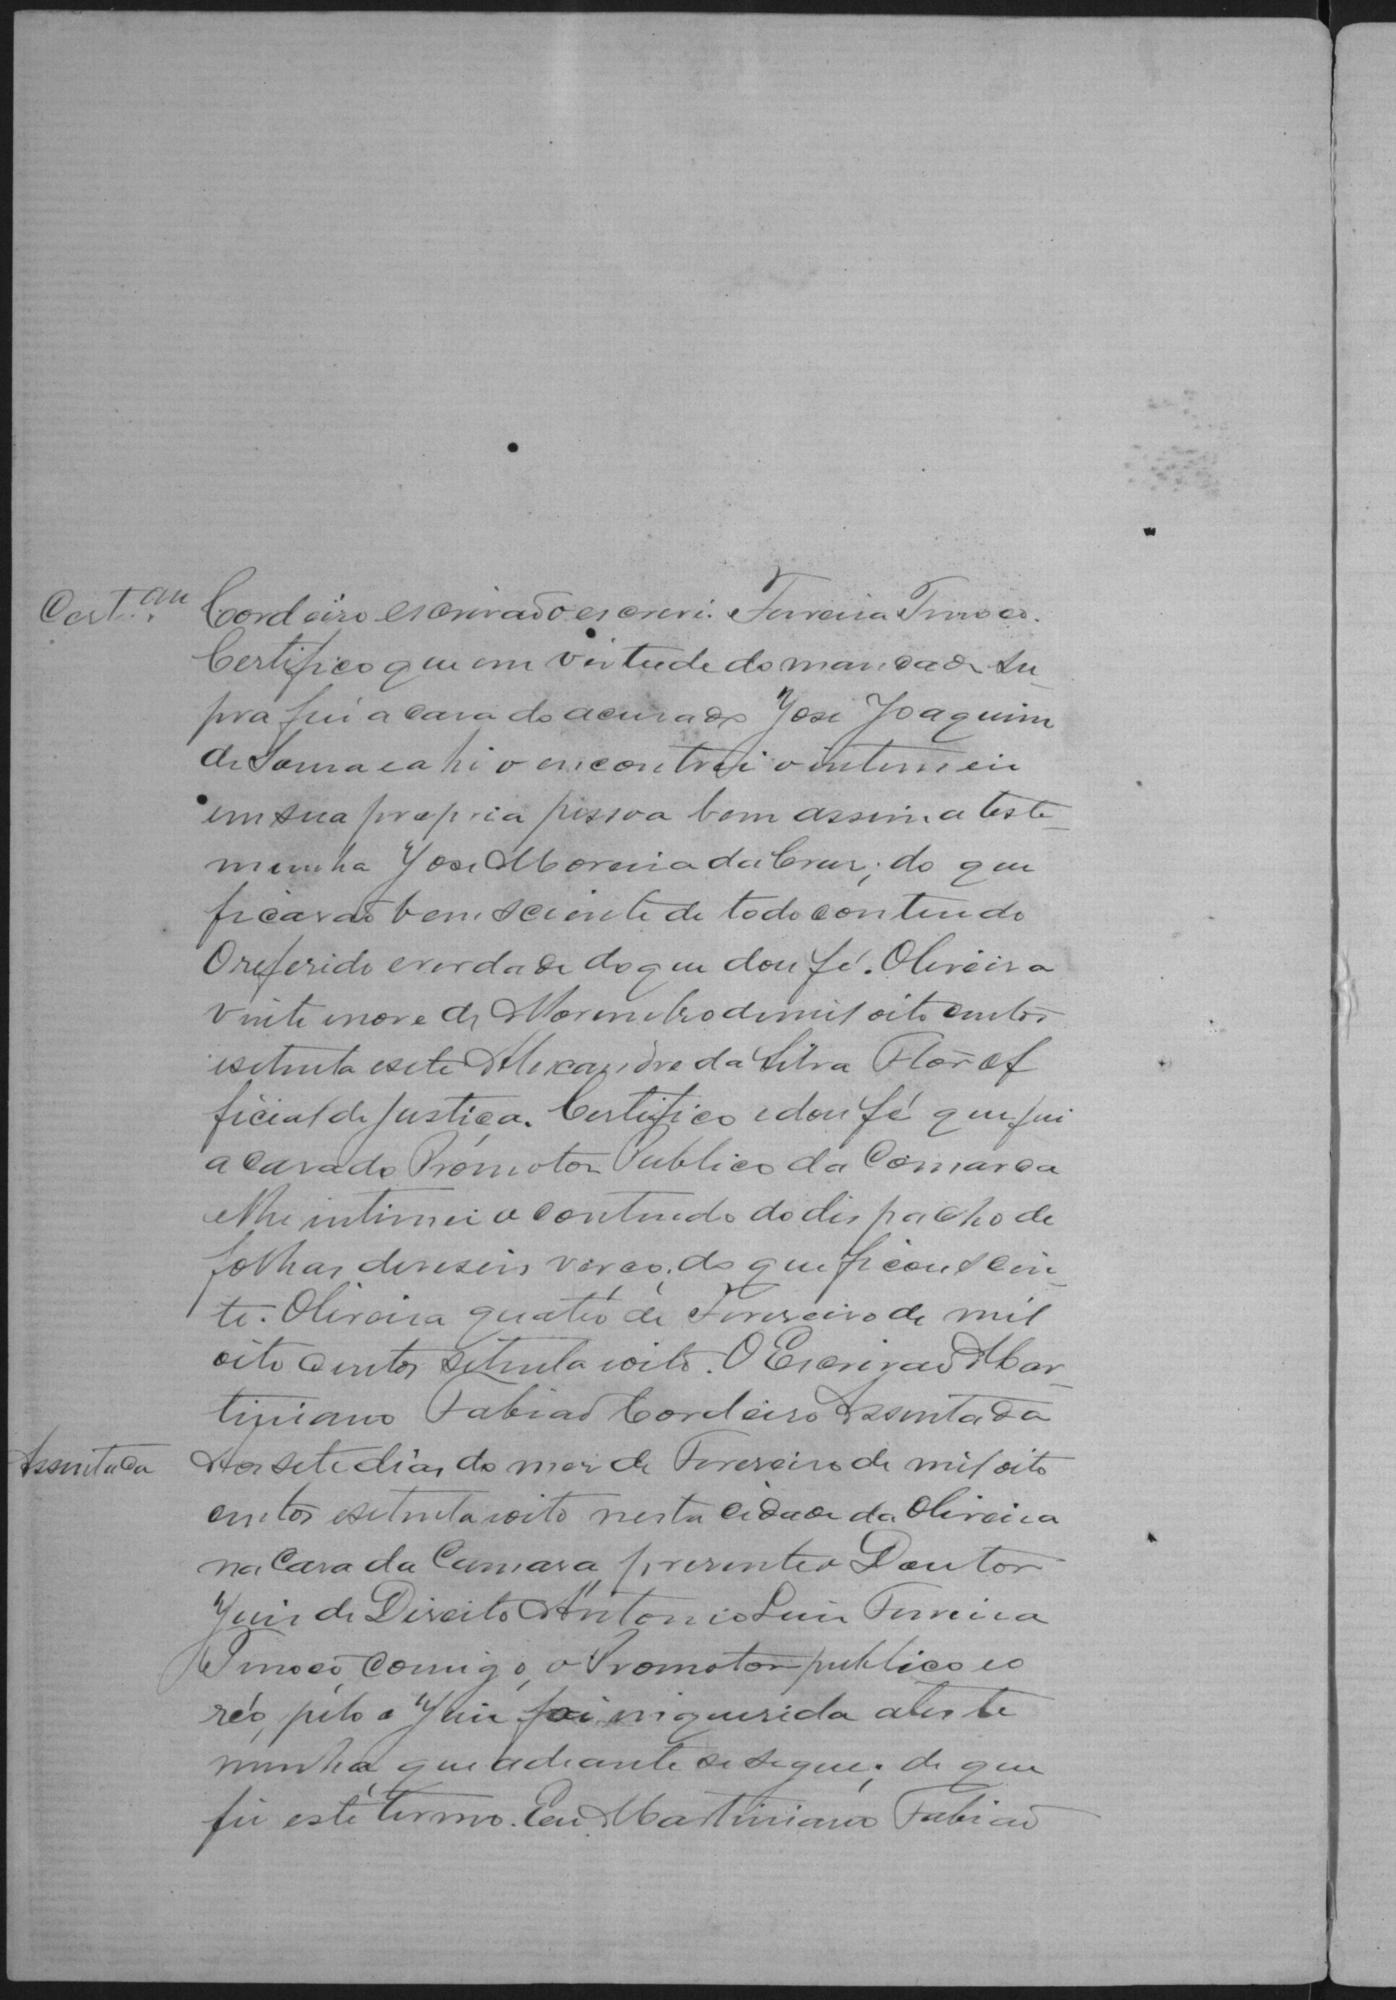 Cert.am Cordeiro escrivão escrevi. Ferreira Tinoco.
Certifico que em virtude do mandado su-
pra fui a casa do acusado José Joaquim
de Sousa e ahi o encontrei o intimei
em sua propria pessoa bem assim a teste-
munha José Moreira da Cruz; do que
ficarão bem sciente de todo contendo
O referido e verdade do que dou fé. Oliveira
vinte nove de Novembro de mil oito centos
e setenta e sete Alexandre da Silva Flor of
ficial de Justiça. Certifico e dou fé que fui
a casa do Promotor Publico da Comarca
e lhe intimei o contendo do dispacho de
folhas deseseis verço, do que ficou scien-
te. Oliveira quatro de Fevereiro de mil
oito centos setenta e oito. O Escrivão Mar-
tiniano Fabião Cordeiro Assentada
Assentada Aos sete dias do mes de Fevereiro de mil oito
centos e setenta e oito nesta cidade da Oliveira
na Casa da Camara presente o Doutor
Juis de Direito Antonio Luis Ferreira
Tinoco, comigo, o Promotor publico e o
réo, pelo o Juis foi inquerida a teste
munha que adeante se segue; de que
fis este termo. Eu Martiniano Fabião